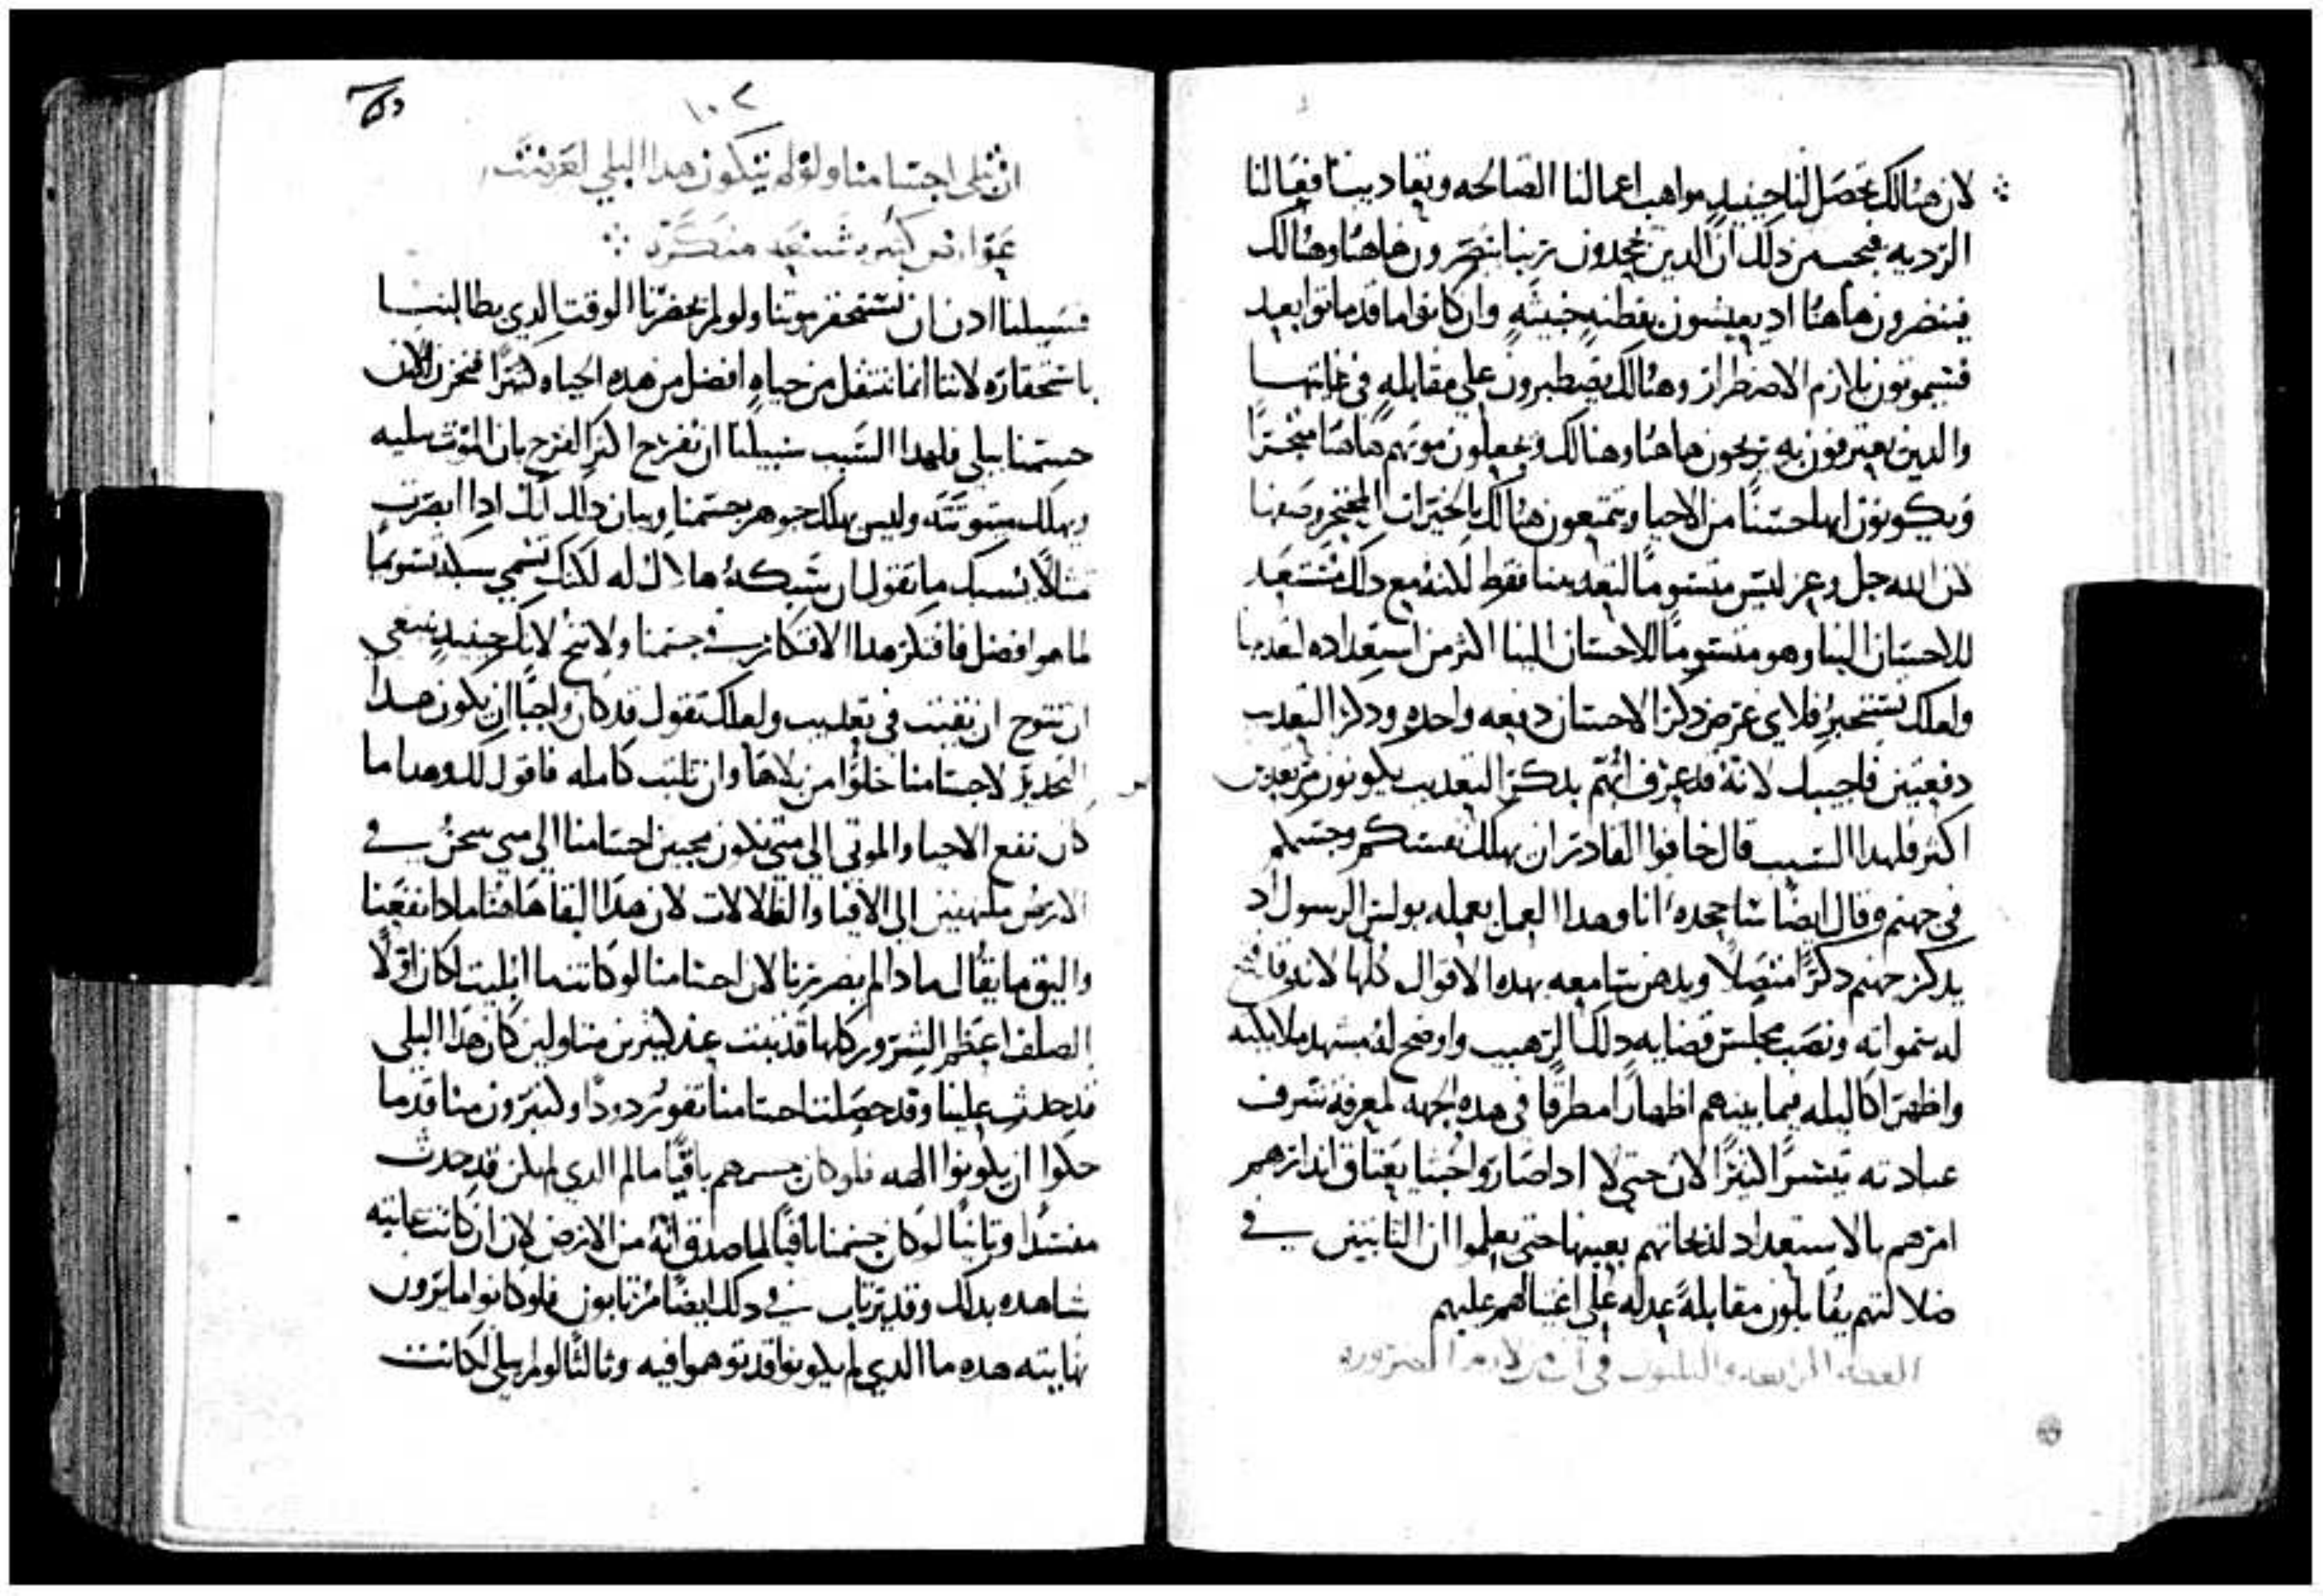 لان هنالك تحصل لنا حينيدٍ مواهب اعمالنا الصالحه وتعاديبنا فعالنا
الرديه فيحسب من ذلك ان الدين يجحدون ربنا ينضرون هاهنا وهنالك
فينضرون هاهنا اد يعيشون بفطنهٍ خبيثهٍ وان كانوا ما قد ماتوا بعد
فسيموتون بلازم الاضطرار وهنالك يضطبرون علي مقابلهٍ في غايتها
والدين يعترفون به يربحون هاهنا وهنالك ويجعلون موتهم هاهنا متجرًا
ويكونون ابها حسنًا من الاحيا ويتمتعون هنالك بالخيرات المعجز وصفها
لان الله جل وعز ليس متسومًا لتعديبنا فقط لكنه مع دلك مستعد
للاحسان الينا وهو متسومًا للاحسان الينا اكثر من استعداده لتعديبنا
ولعلك تستخبر فلاي غرض دكر الاحسان دفعه واحده ودكر التعديب
دفعتين فاجيبك لانه قد عرف انهم بدكر التعديب يكونون مرتعدين
اكثر فلهدا السبب قال خافوا القادر ان يهلك نفسكم وجسمكم
في جهنم وقال ايضًا ساجحده انا وهدا العمل يعمله بولس الرسول اد
يدكر جهنم دكرًا متصلاً ويدهن سامعه بهده الاقوال كلها لانه فتح
له سمواته ونصب مجلس قضايه دلك الرهيب واوضح له مشهد ملايكته
واظهر اكاليله فيما بينهم اظهارًا مطرقًا في هده الجهه لمعرفة شرف
عبادته تيسرًا كثيرًا لان حتي لا ادا صاروا جبنا يعتاق اندارهم
امرهم بالاستعداد لدبحاتهم بعينها حتى يعلموا ان الثابتين في
ضلالتهم يقابلون مقابلةً عدله علي اغتيالهم عليهم
العظه الرابعه والثلثون في ان من لازم الضروره
١٠٢
ان تبلى اجسامنا ولو لم يتكون هدا البلي لعرضت
عوارض كثيره شنعه منكره
فسبيلنا ادن ان نستحقر موتنا ولو لم يحضرنا الوقت الدي يطالبنا
باستحقاره لاننا انما ننتقل من حياهٍ افضل من هده الحياه كثيرًا فنحزن لان
جسمنا يبلى فلهدا السبب سبيلنا ان نفرح اكثر الفرح بان الموت يبليه
ويهلك ميتوتته وليس يهلك جوهر جسمنا وبيان دلك انك ادا ابصرت
تمثالاً يسبك ما تقول ان سبكهُ هلاك له لكنك تسمي سبكه تسومًا
لما هو افضل فافتكر هدا الافتكار في جسمنا ولا تنح لانك حينيدٍ ينبغي
ان تنوح ان بقيت في تعديب ولعلك تقول قد كان واجبًا ان يكون هدا
التحديد لاجسامنا خلوًا من بلاها وان تلبث كامله فاقول لك وهدا ما
كان نفع الاحيا والموتي الي متي نكون محبين اجسامنا الي متي نحن في
الارض ملتهفين الي الافيا والظلالات لان هدا البقا هاهنا مادا نفعنا
واليق ما يقال مادا لم يضررنا لان اجسامنا لو كانت ما ابليت لكان اولاً
الصلف اعظم الشرور كلها قد ثبت عند كثيرين منا ولين كان هدا البلي
قد حدث علينا وقد حصلت اجسامنا تفور دودًا وكثيرون منا قد ما
حكوا ان يكونوا الهه فلو كان جسمهم باقيًا ما لم الدي لم يكن قد حدث
مفسدًا وثانيًا لو كان جسمنا باقيًا لما صدق انه من الارض لان ان كانت غايته
شاهده بدلك وقد يرتاب في دلك ايضًا مرتابون فلو كانوا ما يرون
نهايته هده ما الدي لم يكونوا قد توهموا فيه وثالثًا لو لم يبلي لكانت